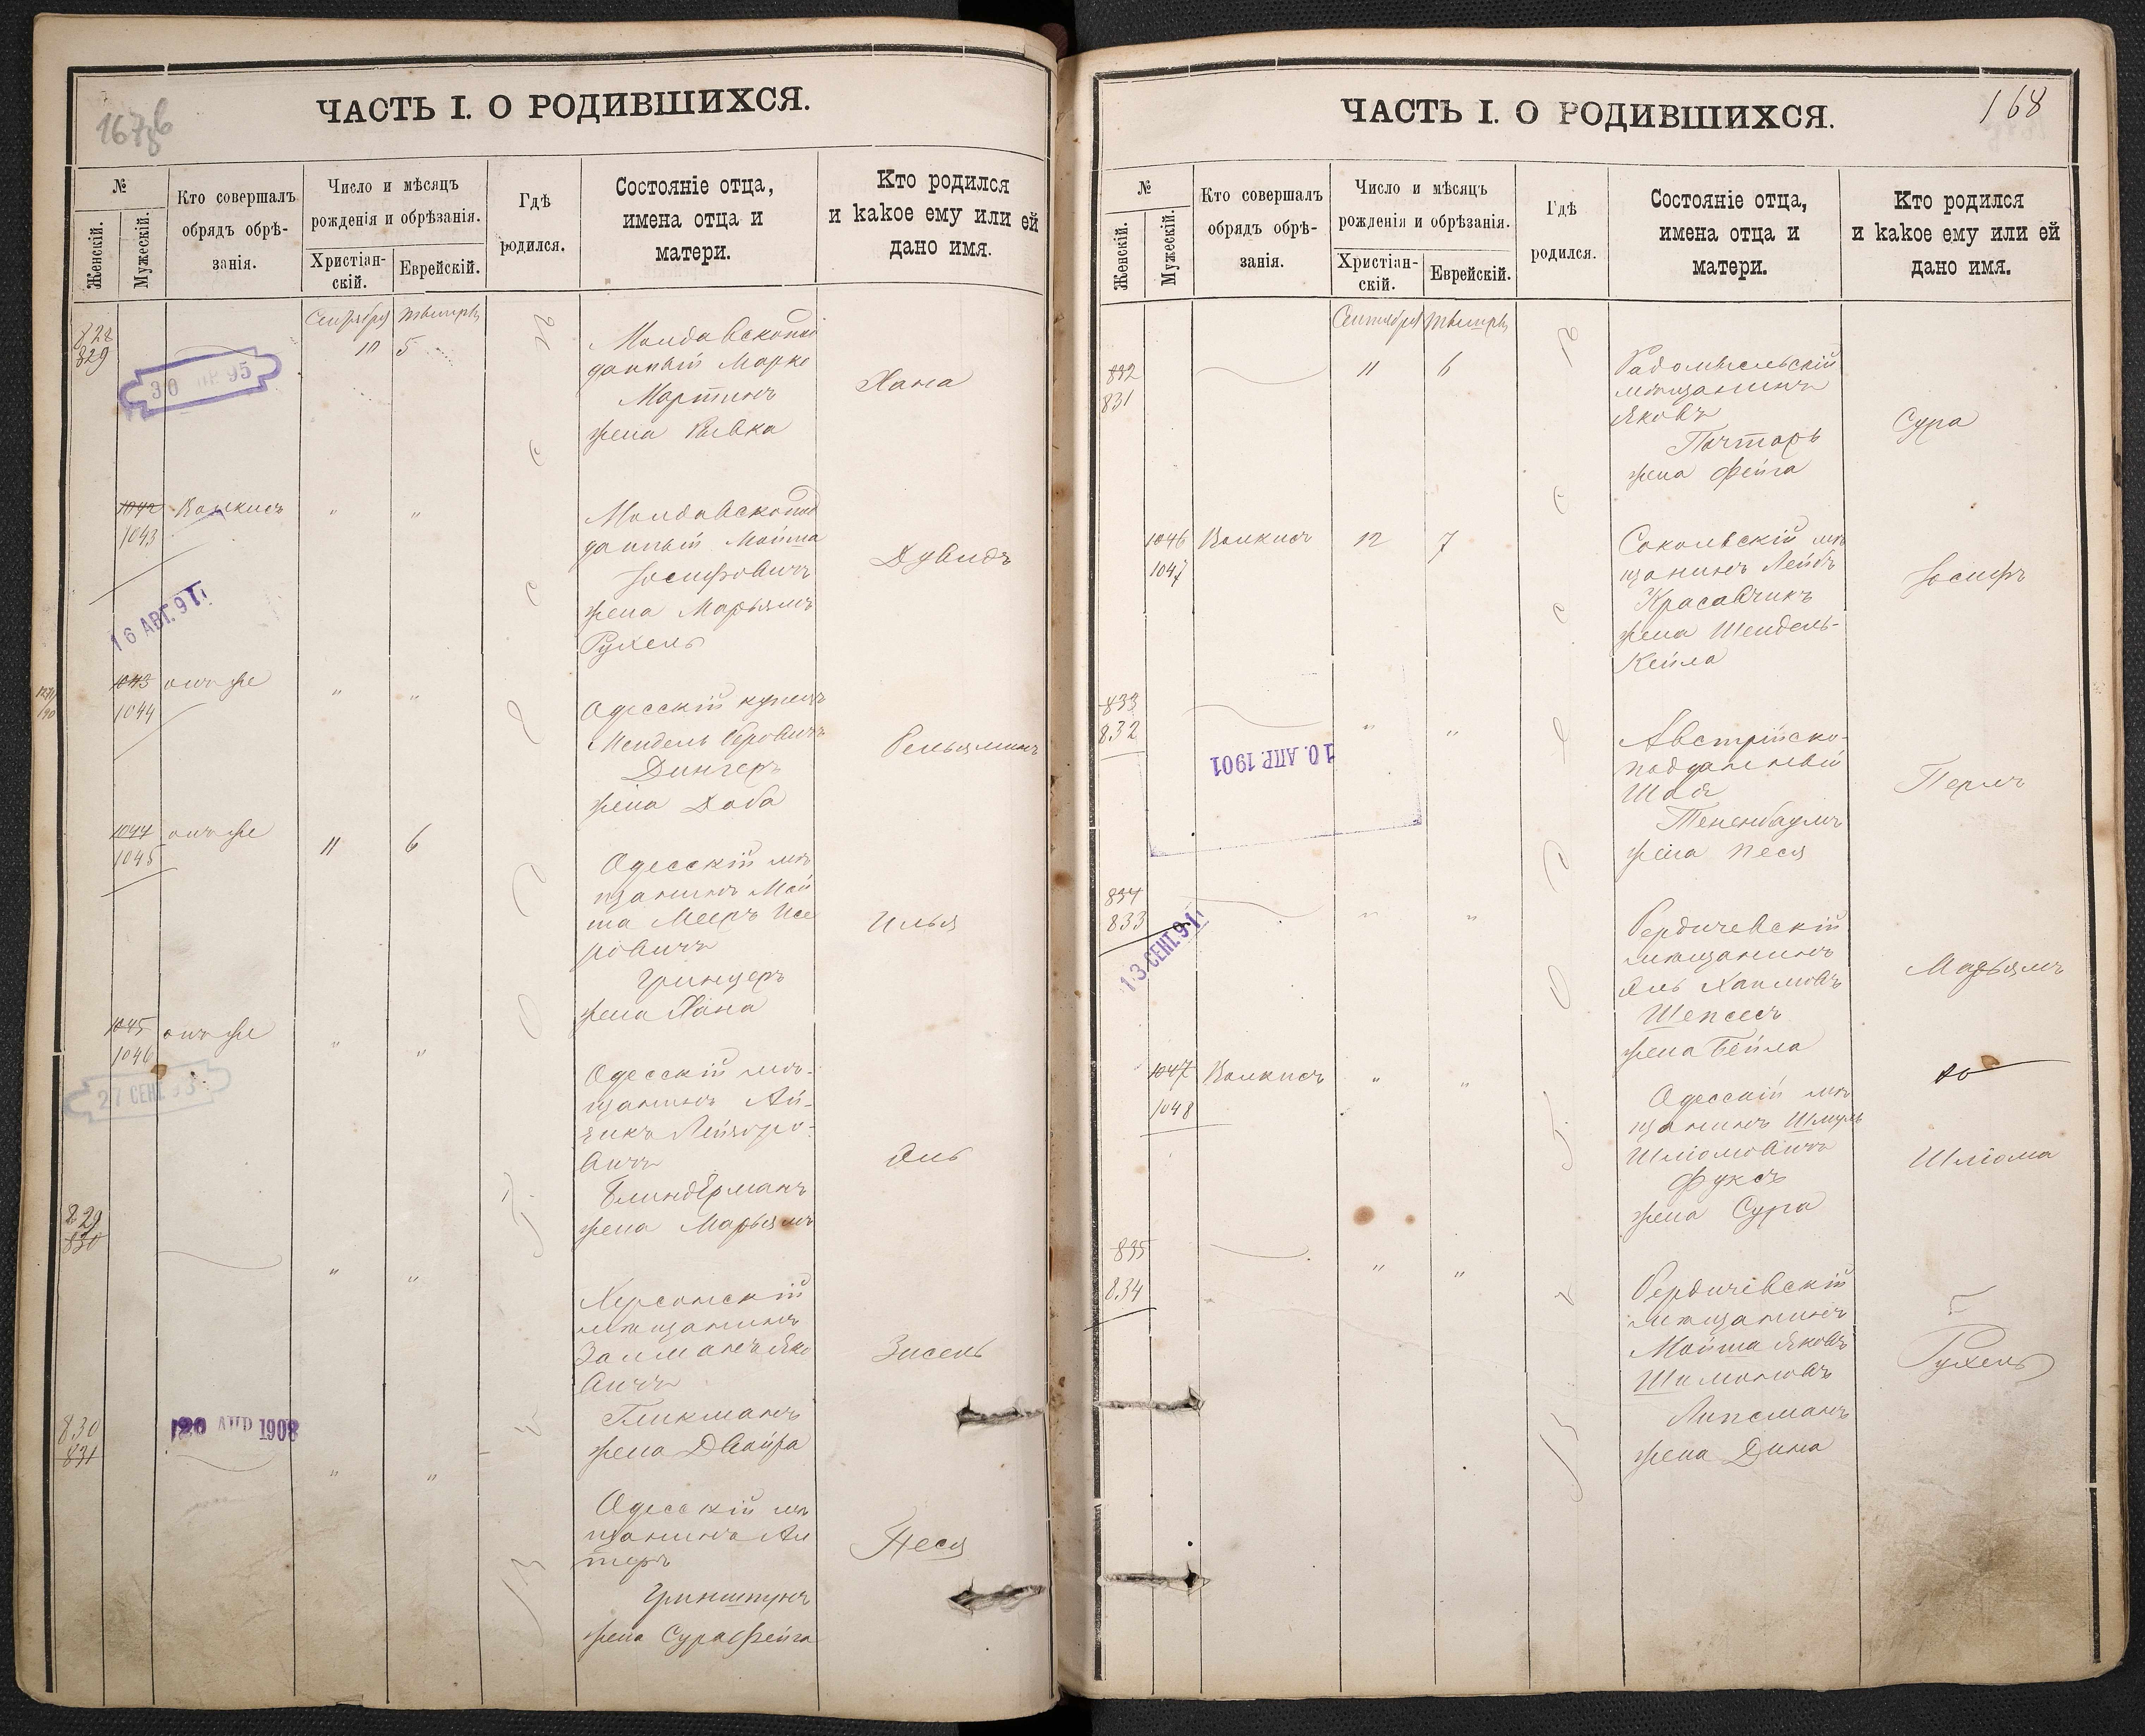 ЧАСТЬ I. О РОДИВШИХСЯ.
№
Женскій.
Мужескій.
Кто совершалъ
обрядъ обрѣ-
занія.
Число и мѣсяцъ
рожденія и обрѣзанія.
Христіан-
скій.
Еврейскій.
Гдѣ
родился.
Состояніе отца,
имена отца и
матери.
Кто родился
и какое ему или ей
дано имя.
829
10 5
Молдавскопод
данный Марко
Мартинъ
жена Ривка
Хана
1042
1043
" "
Молдавскопод
данный Мойша
Іосифовичъ
жена Марьямъ
Рухель
Дувидъ
16 АВГ. 91 г.
1043
1044
онъ же
" "
Одесскій купецъ
Мендель Беровичъ
жена Доба
Беньяминъ
1044
1045
онъ же
11 6
Одесскій мѣ
щанинъ Мой
ша Мееръ Исе
ровичъ
Гринцеръ
жена Хана
Илья
1045
1046
онъ же
" "
27 СЕНТ. 93
Одесскій мѣ-
щанинъ Ай-
зикъ Лейзеро-
вичъ
Блиндерманъ
жена Марьямъ
829
830
" "
Херсонскій
мѣщанинъ
Залманъ Яко
вичъ
Гликманъ
жена Двойра
Зисель
830
831
20 АПР 1908
" "
Одесскій мѣ
щанинъ Ал
теръ
Гринштунъ
жена Сура Фейга
Песя
168
ЧАСТЬ I. О РОДИВШИХСЯ.
№
Женскій.
Мужескій.
Кто совершалъ
обрядъ обрѣ-
занія.
Число и мѣсяцъ
рожденія и обрѣзанія.
Христіан-
скій.
Еврейскій.
Гдѣ
родился.
Состояніе отца,
имена отца и
матери.
Кто родился
и какое ему или ей
дано имя.
832
831
11 6
Радомысльскій
мѣщанинъ
Яковъ
Почтаръ
жена Фейга
Сура
1046
1047
12 7
Сокольскій мѣ
щанинъ Лейбъ
Красавчикъ
жена Шендель-
Кейла
Іосифъ
833
832
" "
10. АПР. 1901
Австрійско-
подданный
Шая
Тененбаумъ
жена Песя
Перль
834
833
" "
13 СЕНТ. 91 г.
Бердичевскій
мѣщанинъ
Шепсесъ
жена Бейла
Марьямъ
1047
1048
" "
Одесскій мѣ
щанинъ Шмуль
Шліомовичъ
Фуксъ
жена Сура
Шліома
835
834
" "
Бердичевскій
мѣщанинъ
Мойша Яковъ
Шимоновъ
Липсманъ
жена Дина
Рухель